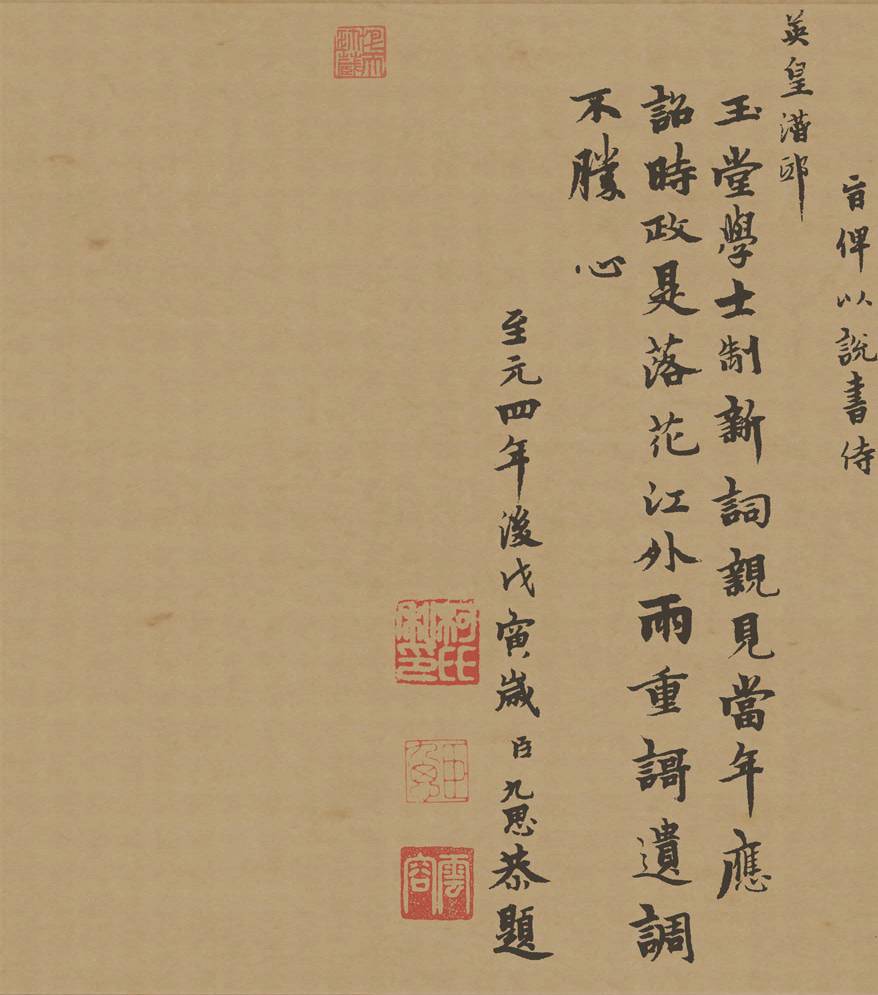 旨俾以說書侍
英皇潛邸
玉堂學士制新詞親見當年應
詔時政是落花江外雨重謌遺調
不勝心
至元四年後戊寅歲臣九思恭題